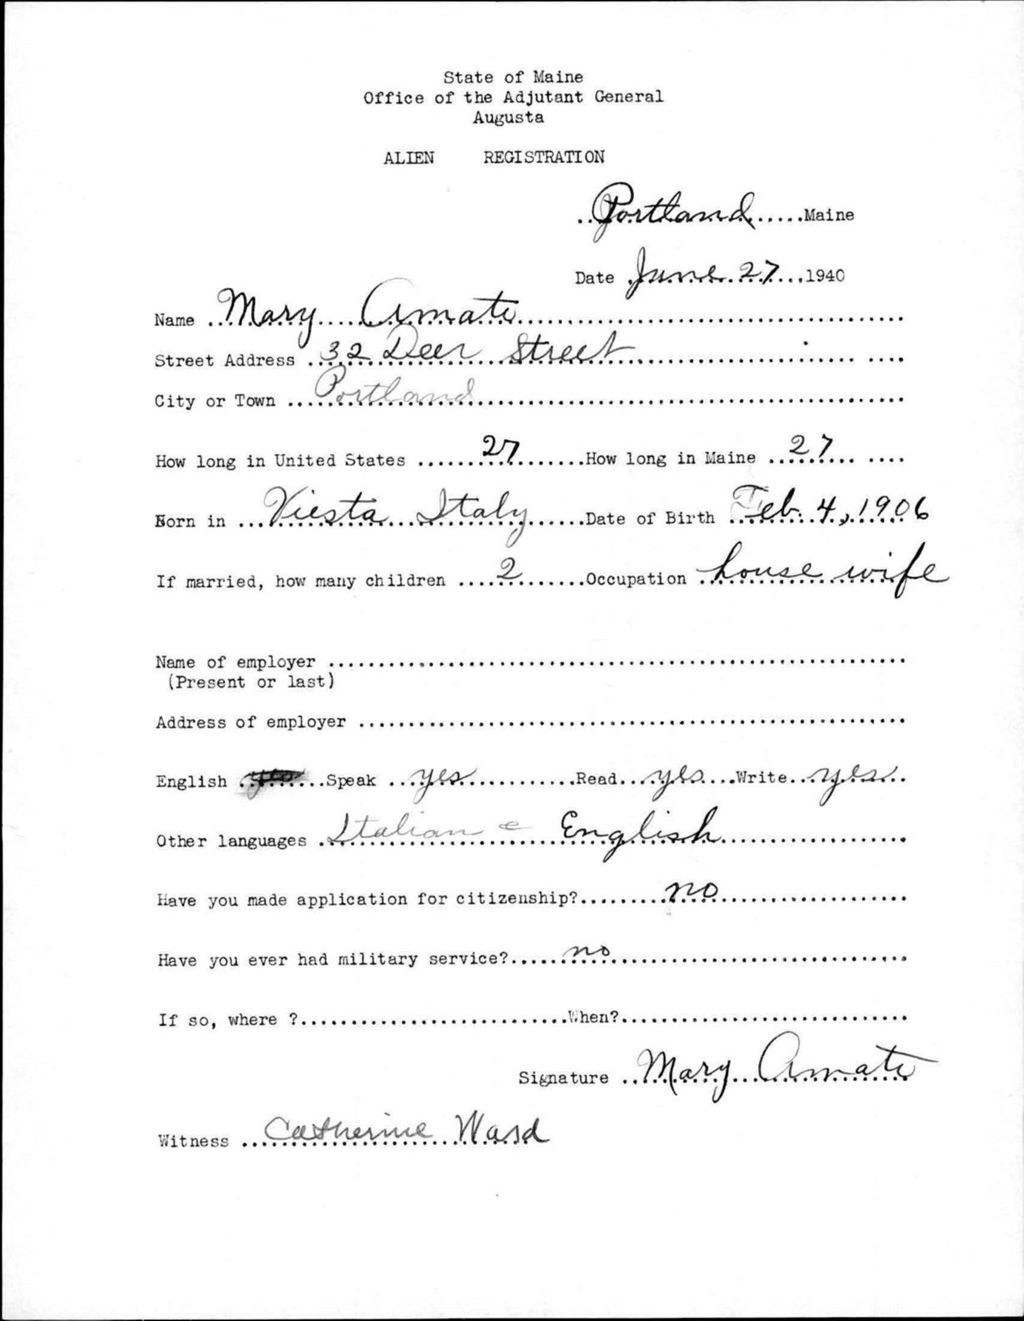 State of Maine
Office of the Adjutant General
Augusta
ALIEN REGISTRATION
..Portland......Maine
Date .June 27...1940
Name ..Mary Amato
Street Address .32 Deer Street
City or Town ...Portland
How long in United States ......27.......How long in Maine ..27... ....
Born in ...Viesta Italy......Date of Birth .Feb. 4, 1906
If married, how many children ....2.......Occupation .house wife
Name of employer
(Present or last)
Address of employer
English yes......Speak ..yes..........Read...yes...Write..yes..
Other languages .Italian & English
Have you made application for citizenship?.........no
Have you ever had military service?.....no
If so, where ?...........................When?
Signature ..Mary Amato
Witness ..Catherine Ward